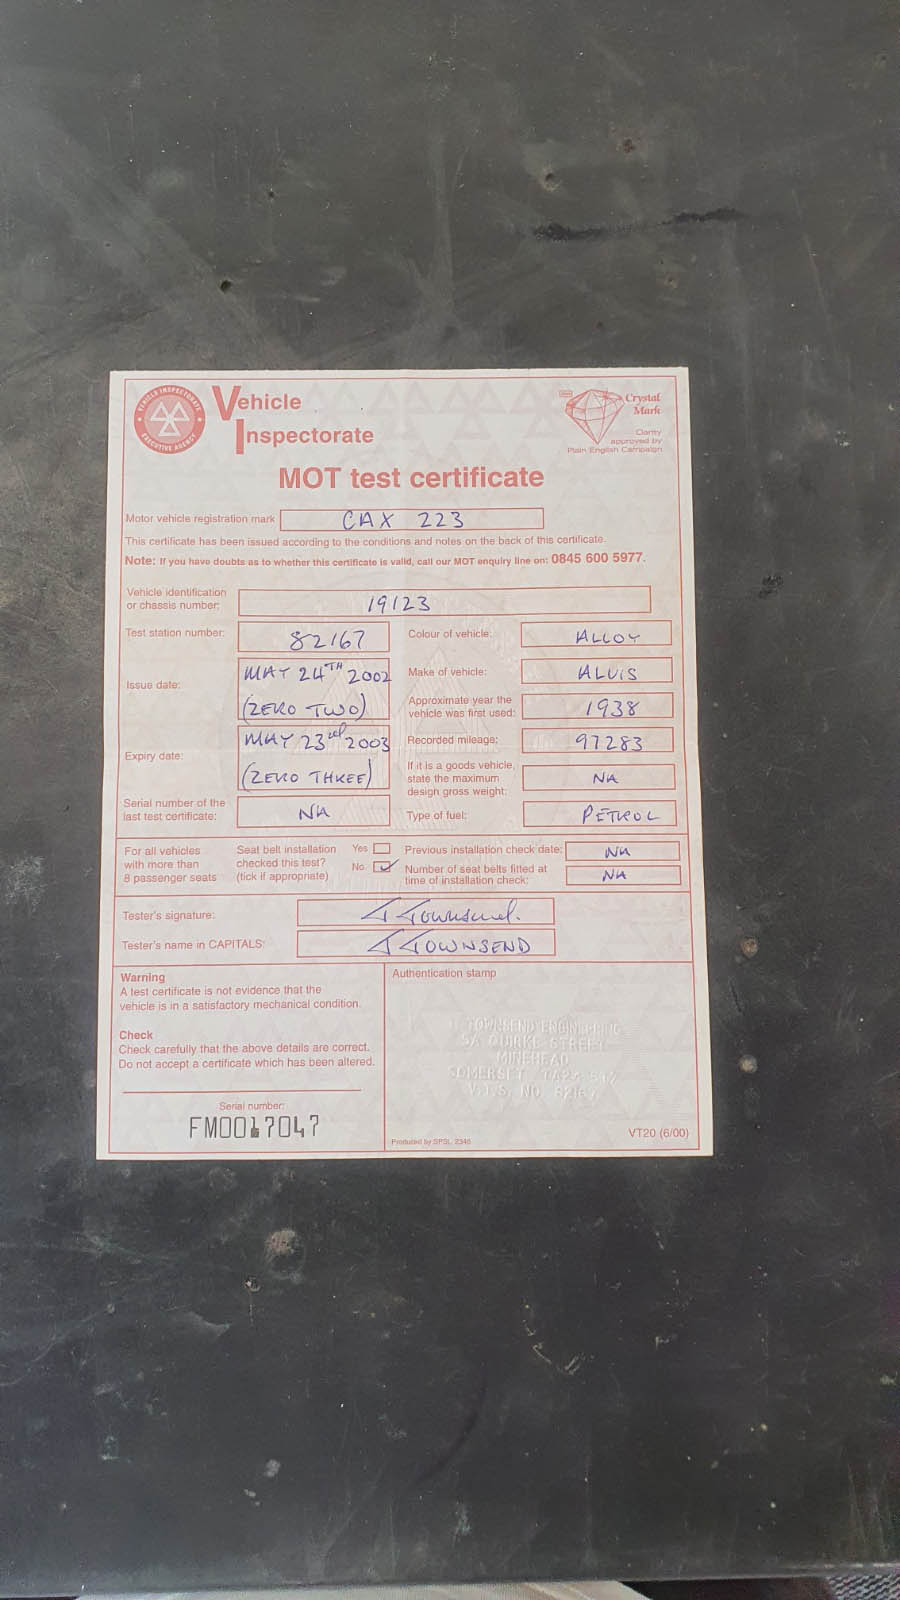 VEHICLE INSPECTORATE
EXECUTIVE AGENCY
Vehicle
Inspectorate
Crystal
Mark
Clarity
approved by
Plain English Campaign
MOT test certificate
Motor vehicle registration mark CAX 223
This certificate has been issued according to the conditions and notes on the back of this certificate.
Note: If you have doubts as to whether this certificate is valid, call our MOT enquiry line on: 0845 600 5977.
Vehicle identification
or chassis number: 19123
Test station number: 82167
Colour of vehicle: ALLOY
Issue date: MAY 24TH 2002
(ZERO TWO)
Make of vehicle: ALVIS
Approximate year the
vehicle was first used: 1938
Expiry date: MAY 23rd 2003
(ZERO THREE)
Recorded mileage: 97283
If it is a goods vehicle,
state the maximum
design gross weight: NA
Serial number of the
last test certificate: NA
Type of fuel: PETROL
For all vehicles
with more than
8 passenger seats
Seat belt installation
checked this test?
(tick if appropriate)
Yes
No ✓
Previous installation check date: NA
Number of seat belts fitted at
time of installation check: NA
Tester's signature: T Townsend.
Tester's name in CAPITALS: T TOWNSEND
Warning
A test certificate is not evidence that the
vehicle is in a satisfactory mechanical condition.
Check
Check carefully that the above details are correct.
Do not accept a certificate which has been altered.
Serial number:
FM0017047
Authentication stamp
TOWNSEND ENGINEERING
5A QUIRKE STREET
MINEHEAD
SOMERSET TA24
V.T.S. NO. 82167
Produced by SPSL 2346
VT20 (6/00)